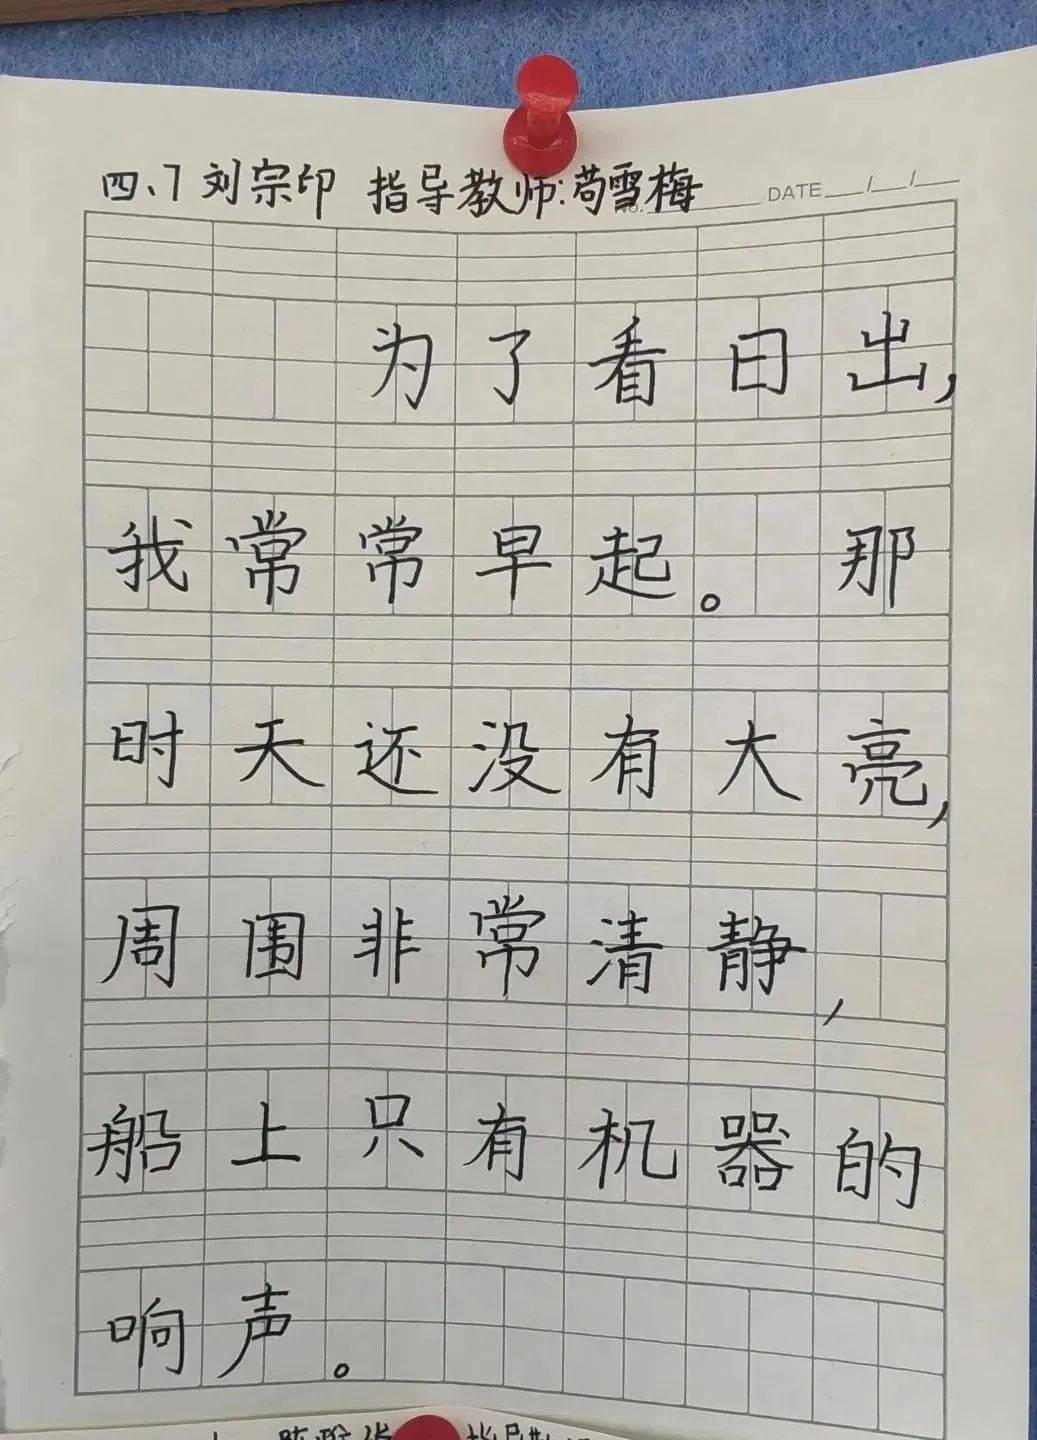 四、7 刘宗印 指导教师:苟雪梅
DATE __/__/__
为了看日出,
我常常早起。那
时天还没有大亮,
周围非常清静,
船上只有机器的
响声。